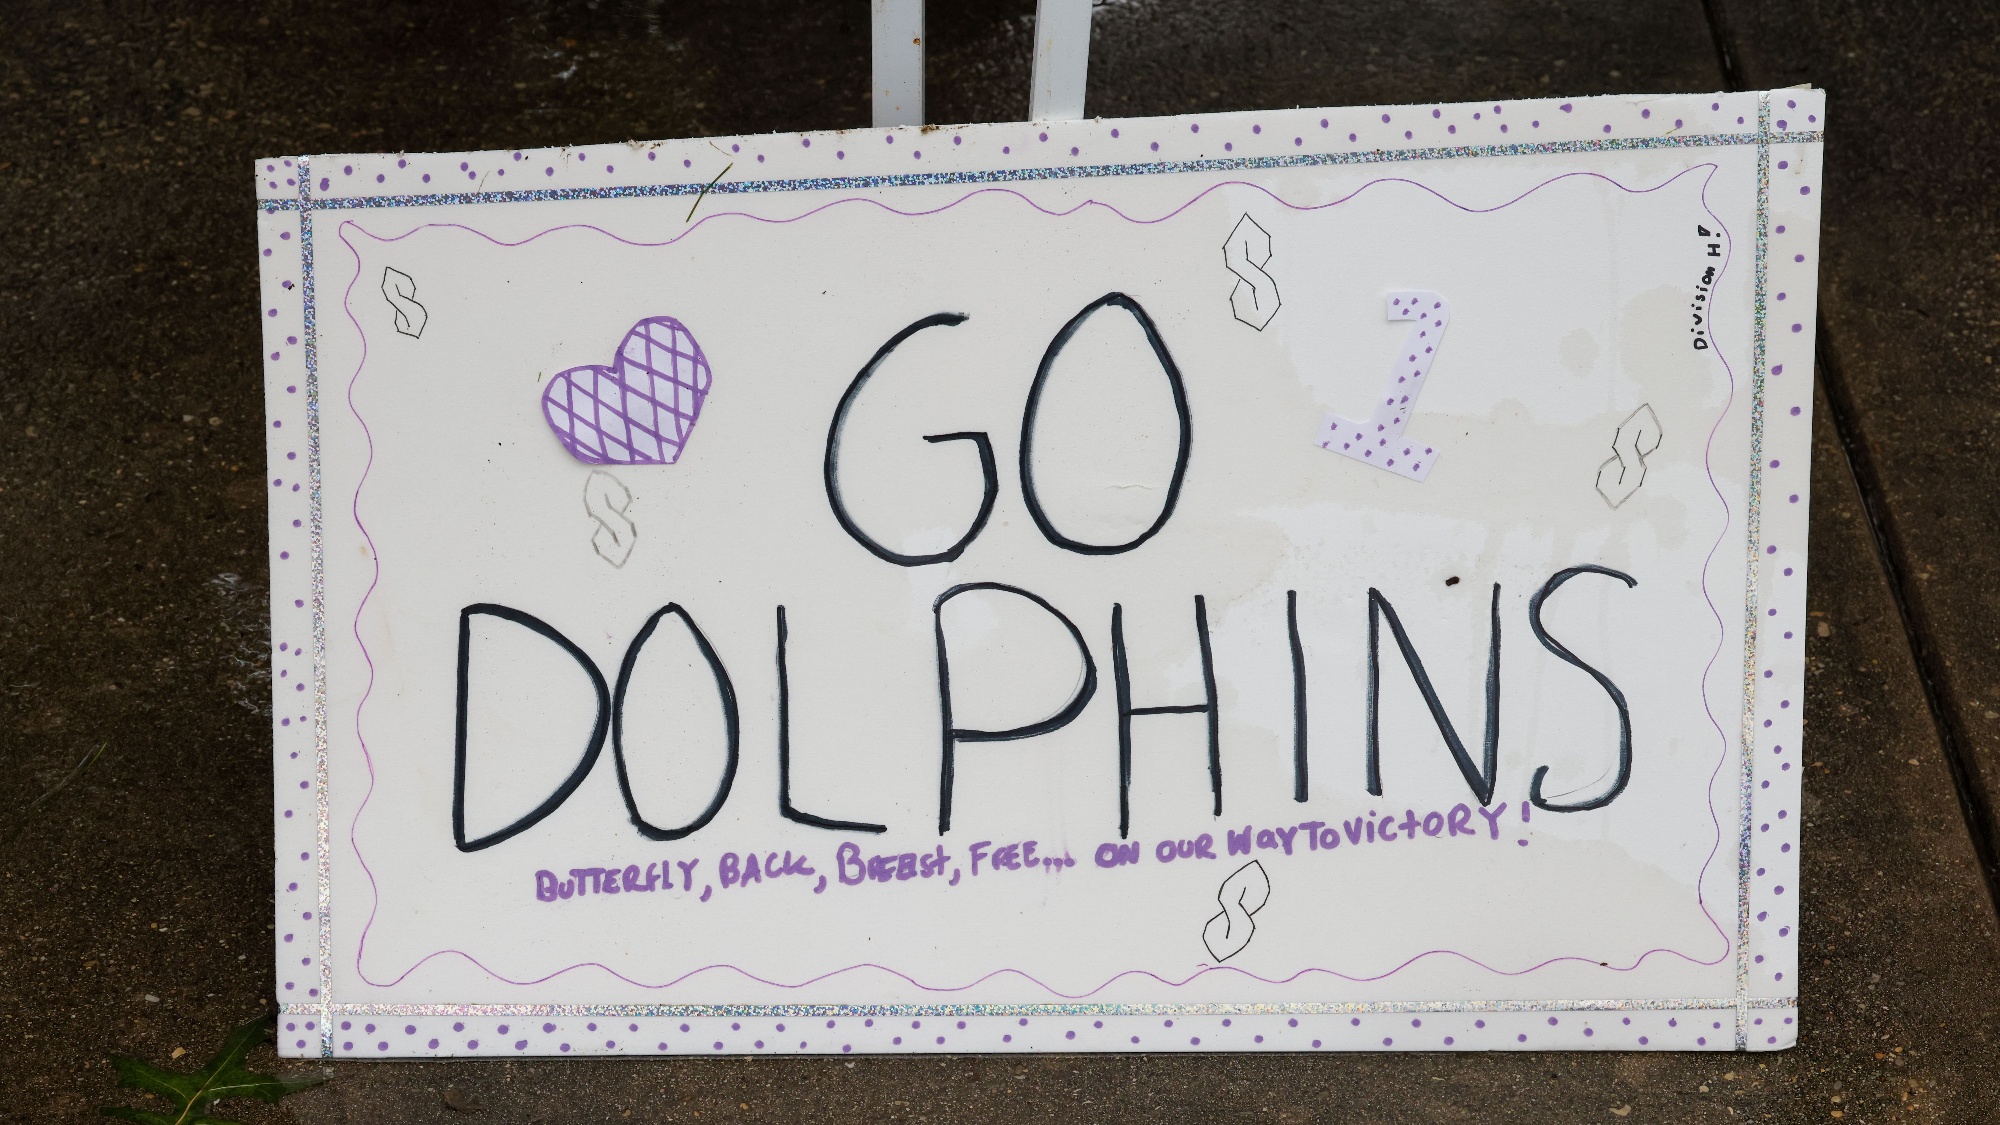 GO
1
Division H!
DOLPHINS
BUTTERFLY, BACK, BREEST, FREE... ON OUR WAY TO VICtORY!